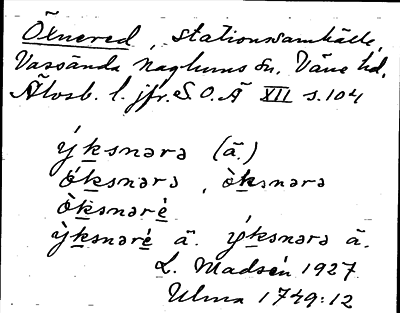 Öxnered, stationssamhälle,
Vassända Naglums sn. Väne hd.
Älvsb. l. jfr. S.O.Ä XII s. 104
ýksnərə (ä.)
óksnərə, òksnərə
òksnəré
ỳksnəré ä. ýksnərə ä.
L. Madsén 1927
Ulma 1749:12